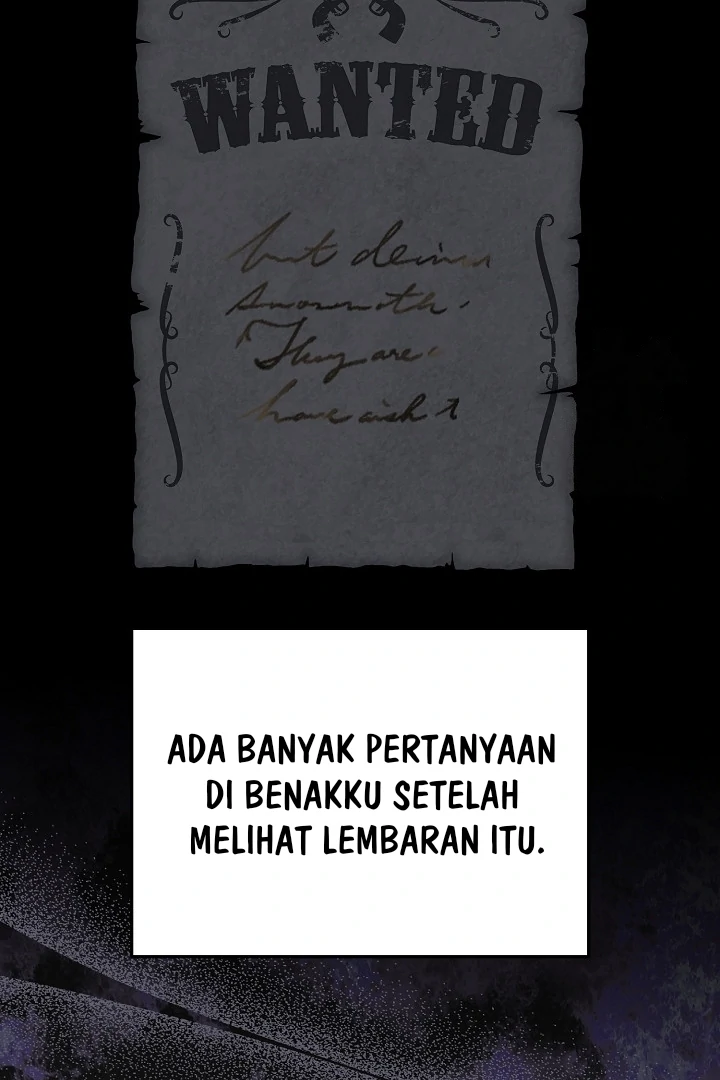 WANTED
but
They are
have
ADA BANYAK PERTANYAAN
DI BENAKKU SETELAH
MELIHAT LEMBARAN ITU.